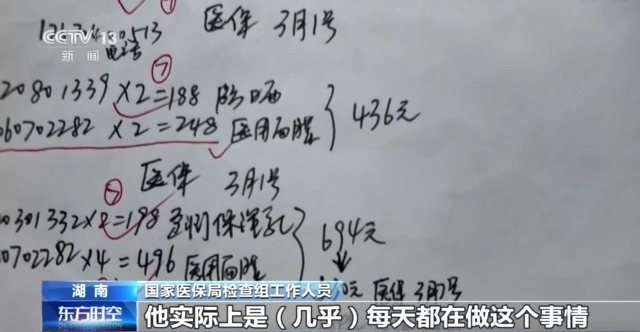 CCTV 13
新闻
医保 3月1号
20801339 ×2=188
060702282 ×2=248 医用面膜
436元
医保 3月1号
0301332×2=198
0702282×4=496 医用面膜
694元
元 医保 3月1号
湖南
国家医保局检查组工作人员
东方时空
他实际上是（几乎）每天都在做这个事情